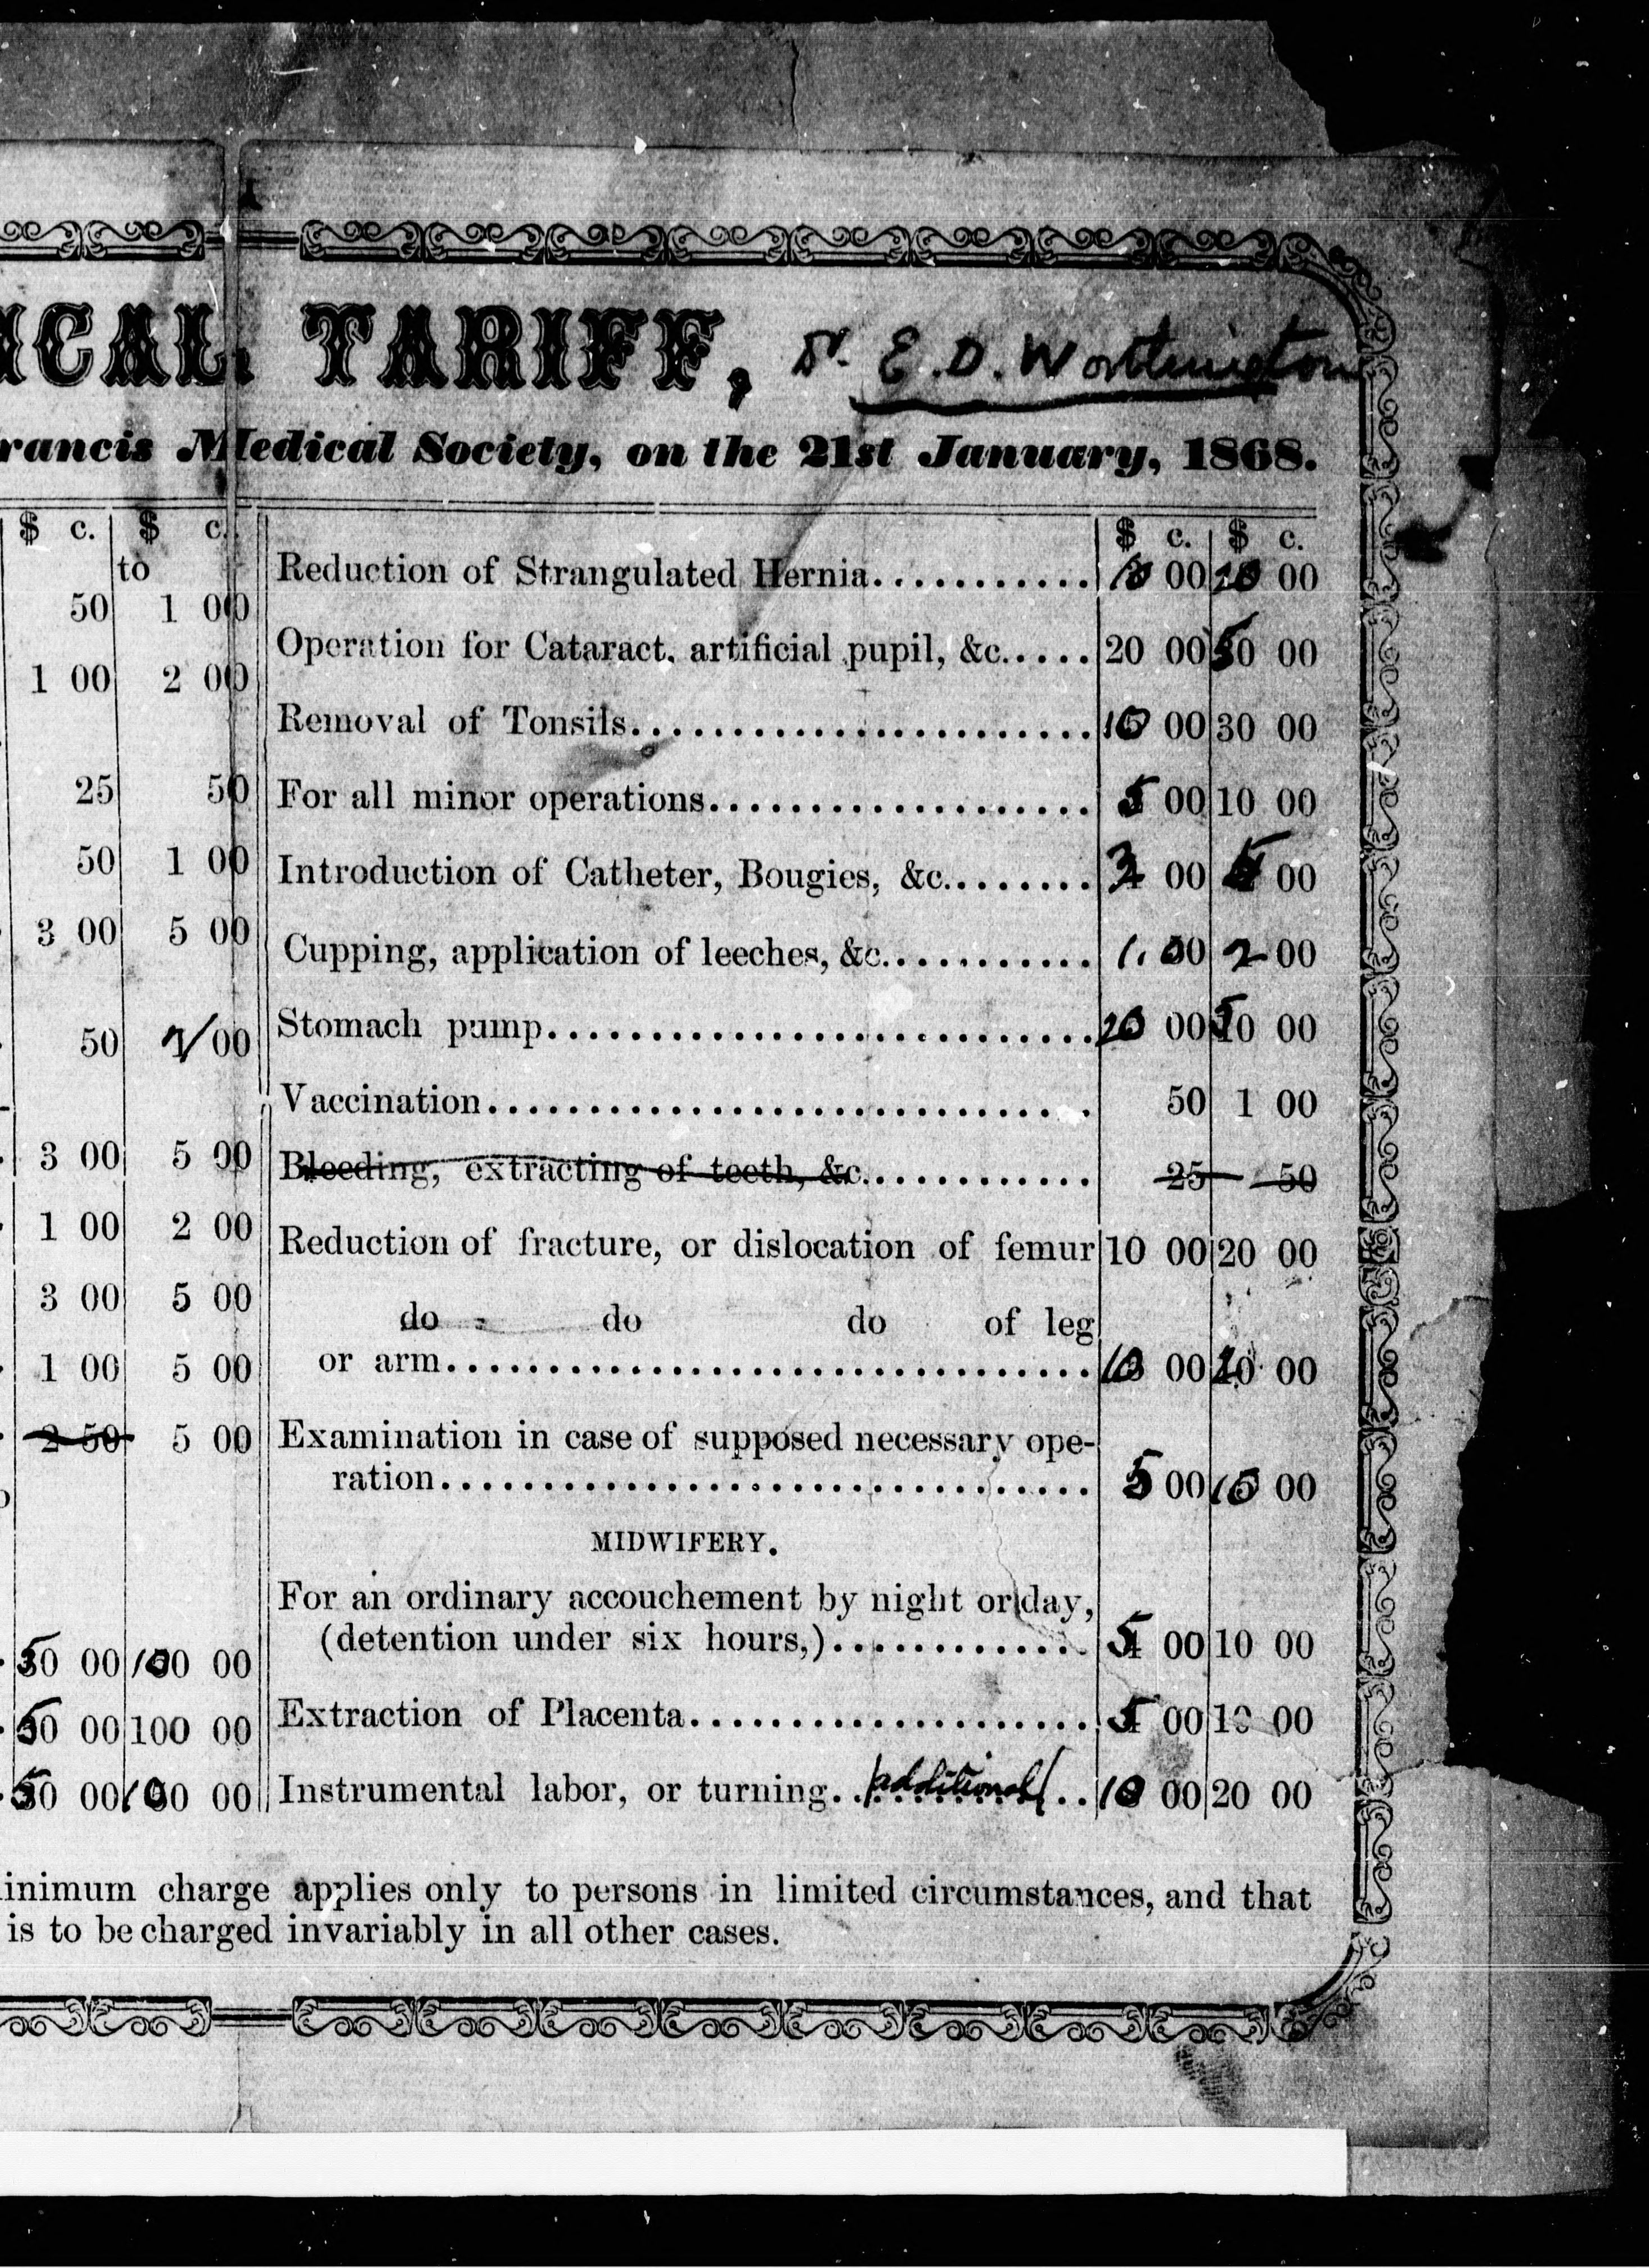 ICAL TARIFF, Dr. E. D. Worthington
rancis Medical Society, on the 21st January, 1868.
$ c. $ c.
to
50 1 00
1 00 2 00
25 50
50 1 00
3 00 5 00
50 2/00
3 00 5 00
1 00 2 00
3 00 5 00
1 00 5 00
2 50 5 00
50 00 100 00
50 00 100 00
50 00 100 00
$ c. $ c.
Reduction of Strangulated Hernia............ 10 00 20 00
Operation for Cataract, artificial pupil, &c..... 20 00 50 00
Removal of Tonsils........................ 10 00 30 00
For all minor operations................... 5 00 10 00
Introduction of Catheter, Bougies, &c........ 3 00 5 00
Cupping, application of leeches, &c........... 1.00 2 00
Stomach pump............................ 20 00 50 00
Vaccination.............................. 50 1 00
Bleeding, extracting of teeth, &c............. 25 50
Reduction of fracture, or dislocation of femur 10 00 20 00
do do do of leg
or arm................................ 10 00 20 00
Examination in case of supposed necessary ope-
ration................................ 5 00 10 00
MIDWIFERY.
For an ordinary accouchement by night or day,
(detention under six hours,)............. 5 00 10 00
Extraction of Placenta.................... 5 00 10 00
Instrumental labor, or turning. (additional) .. 10 00 20 00
inimum charge applies only to persons in limited circumstances, and that
is to be charged invariably in all other cases.